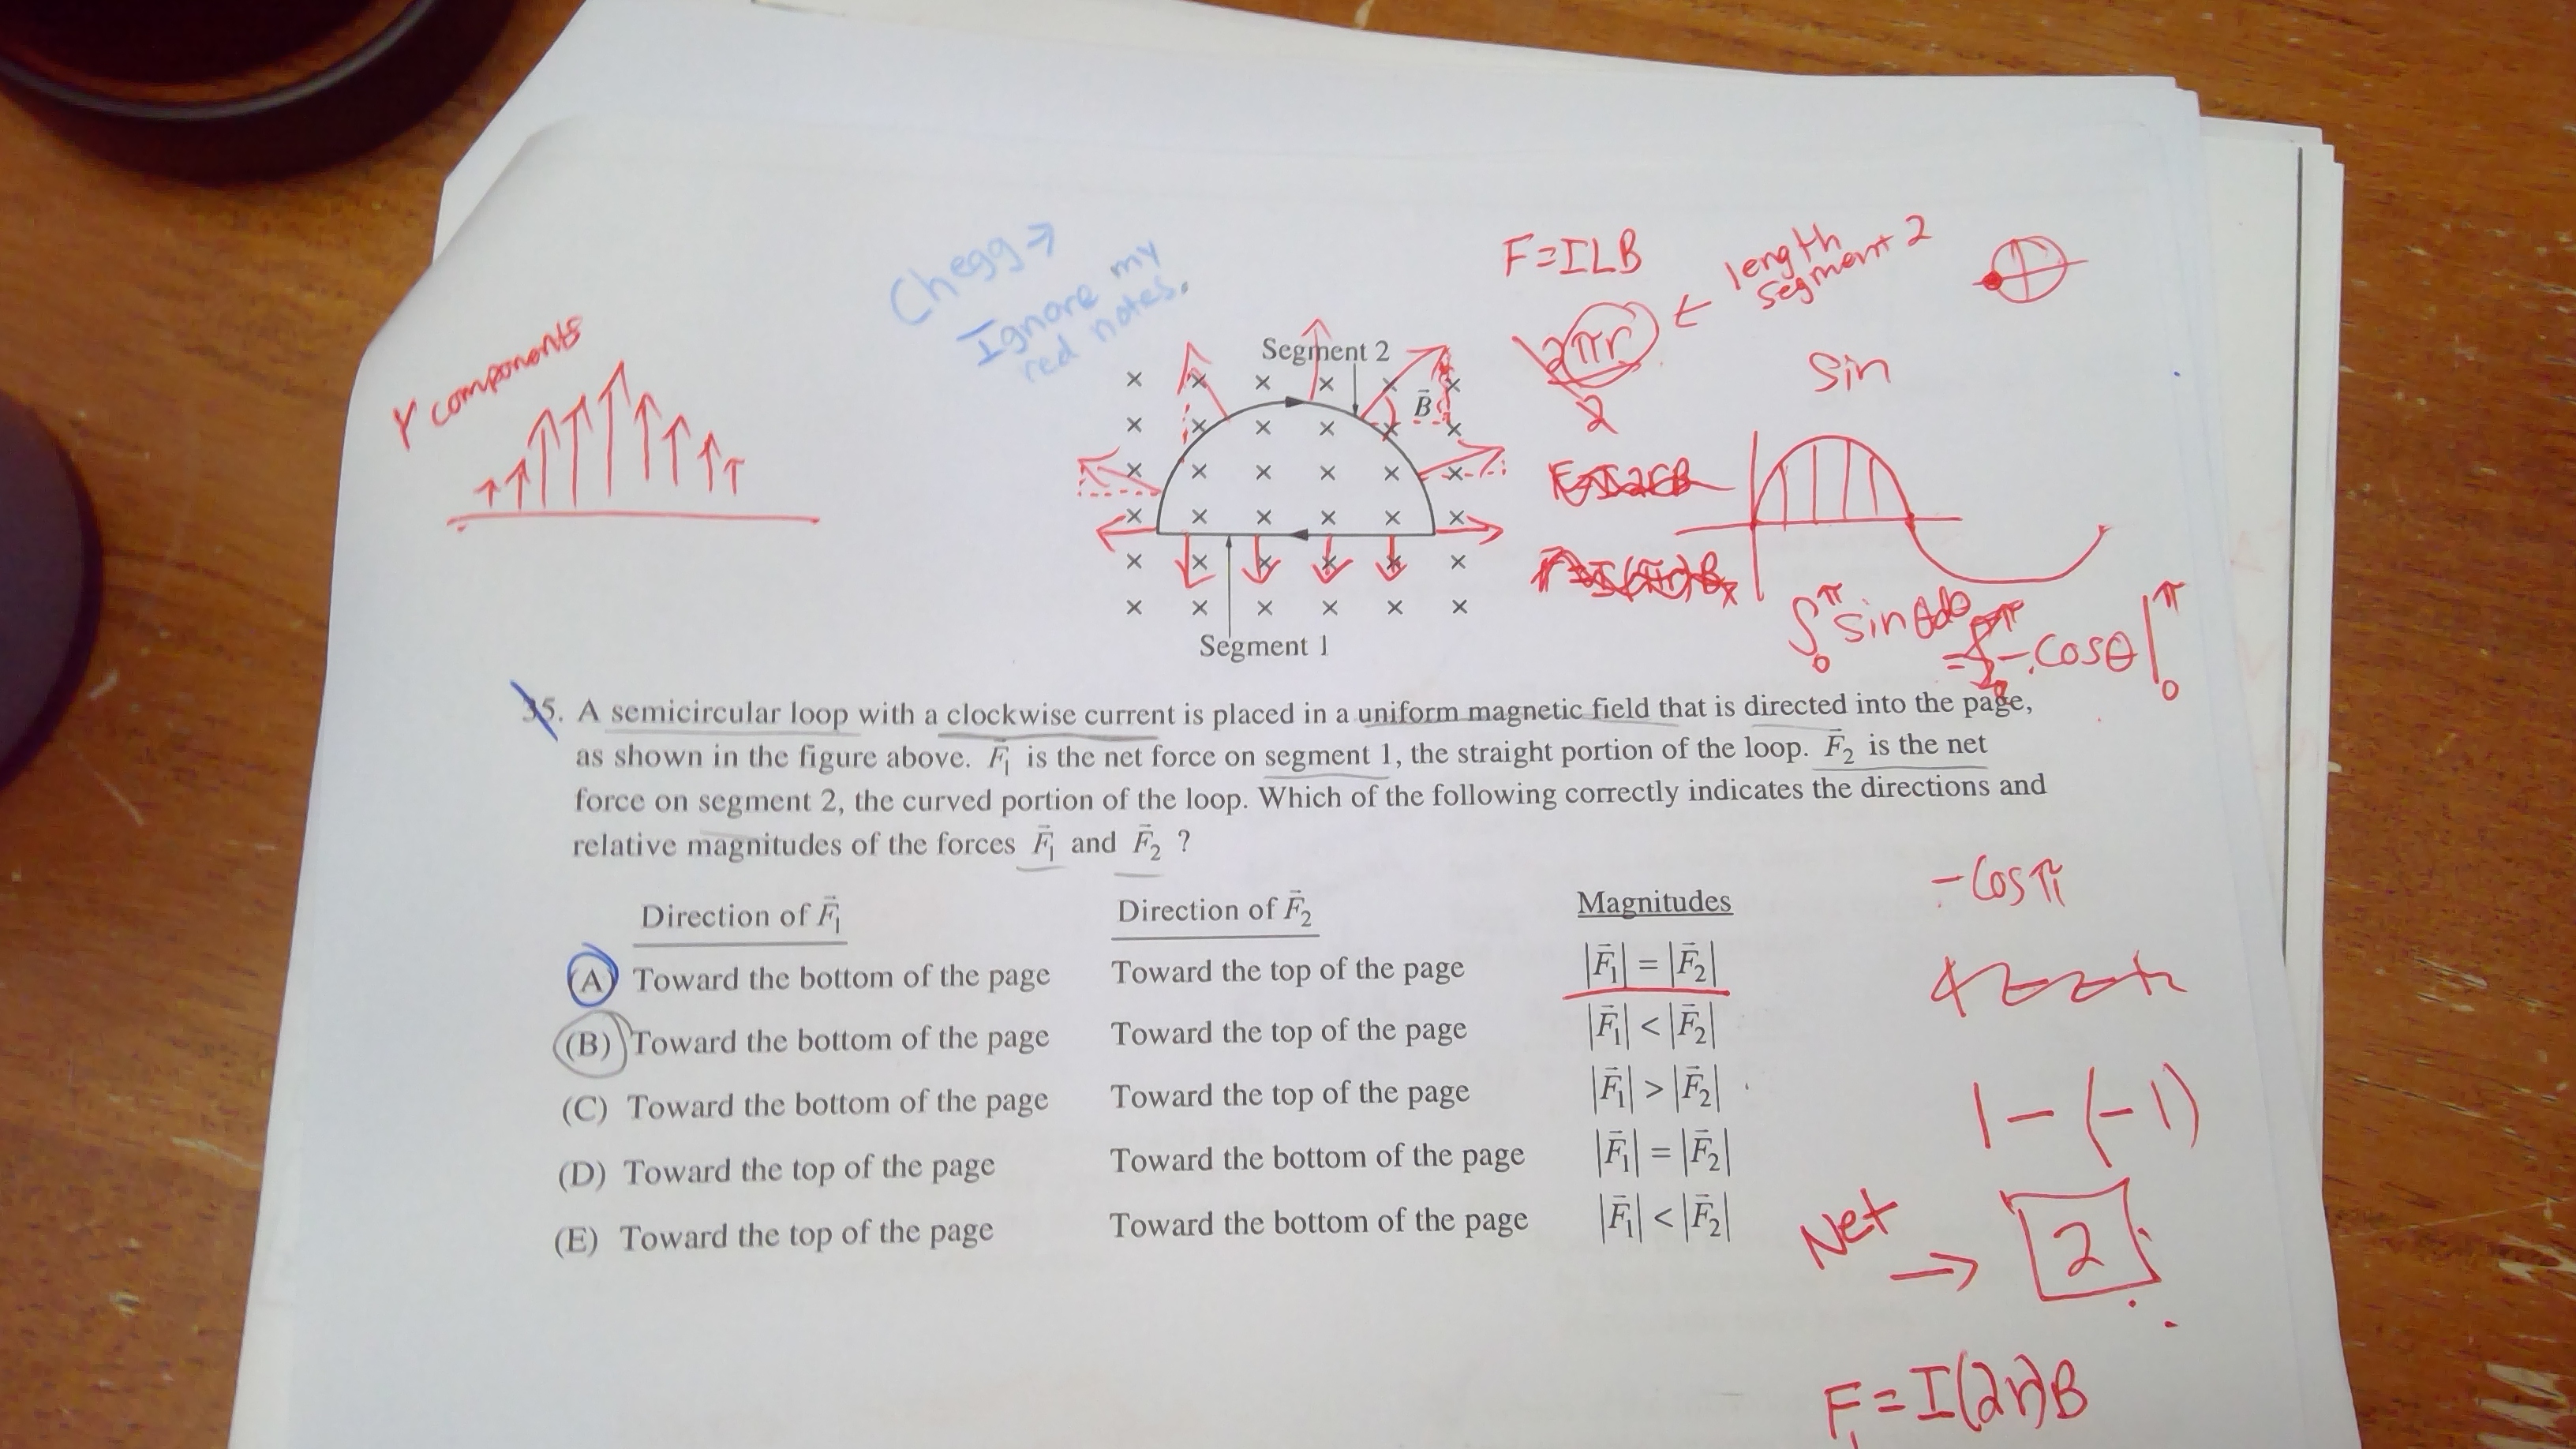 Chegg →
Ignore my
red notes.
Y components
F=ILB
length
segment 2
2πr
2
sin
Segment 2
B
Segment 1
∫₀^π sinθdθ
= -cosθ|₀^π
35. A semicircular loop with a clockwise current is placed in a uniform magnetic field that is directed into the page,
as shown in the figure above. F₁ is the net force on segment 1, the straight portion of the loop. F₂ is the net
force on segment 2, the curved portion of the loop. Which of the following correctly indicates the directions and
relative magnitudes of the forces F₁ and F₂ ?
Direction of F₁ Direction of F₂ Magnitudes
(A) Toward the bottom of the page Toward the top of the page |F₁| = |F₂|
(B) Toward the bottom of the page Toward the top of the page |F₁| < |F₂|
(C) Toward the bottom of the page Toward the top of the page |F₁| > |F₂|
(D) Toward the top of the page Toward the bottom of the page |F₁| = |F₂|
(E) Toward the top of the page Toward the bottom of the page |F₁| < |F₂|
-cos π
1-(-1)
Net → 2
F₁=I(2r)B